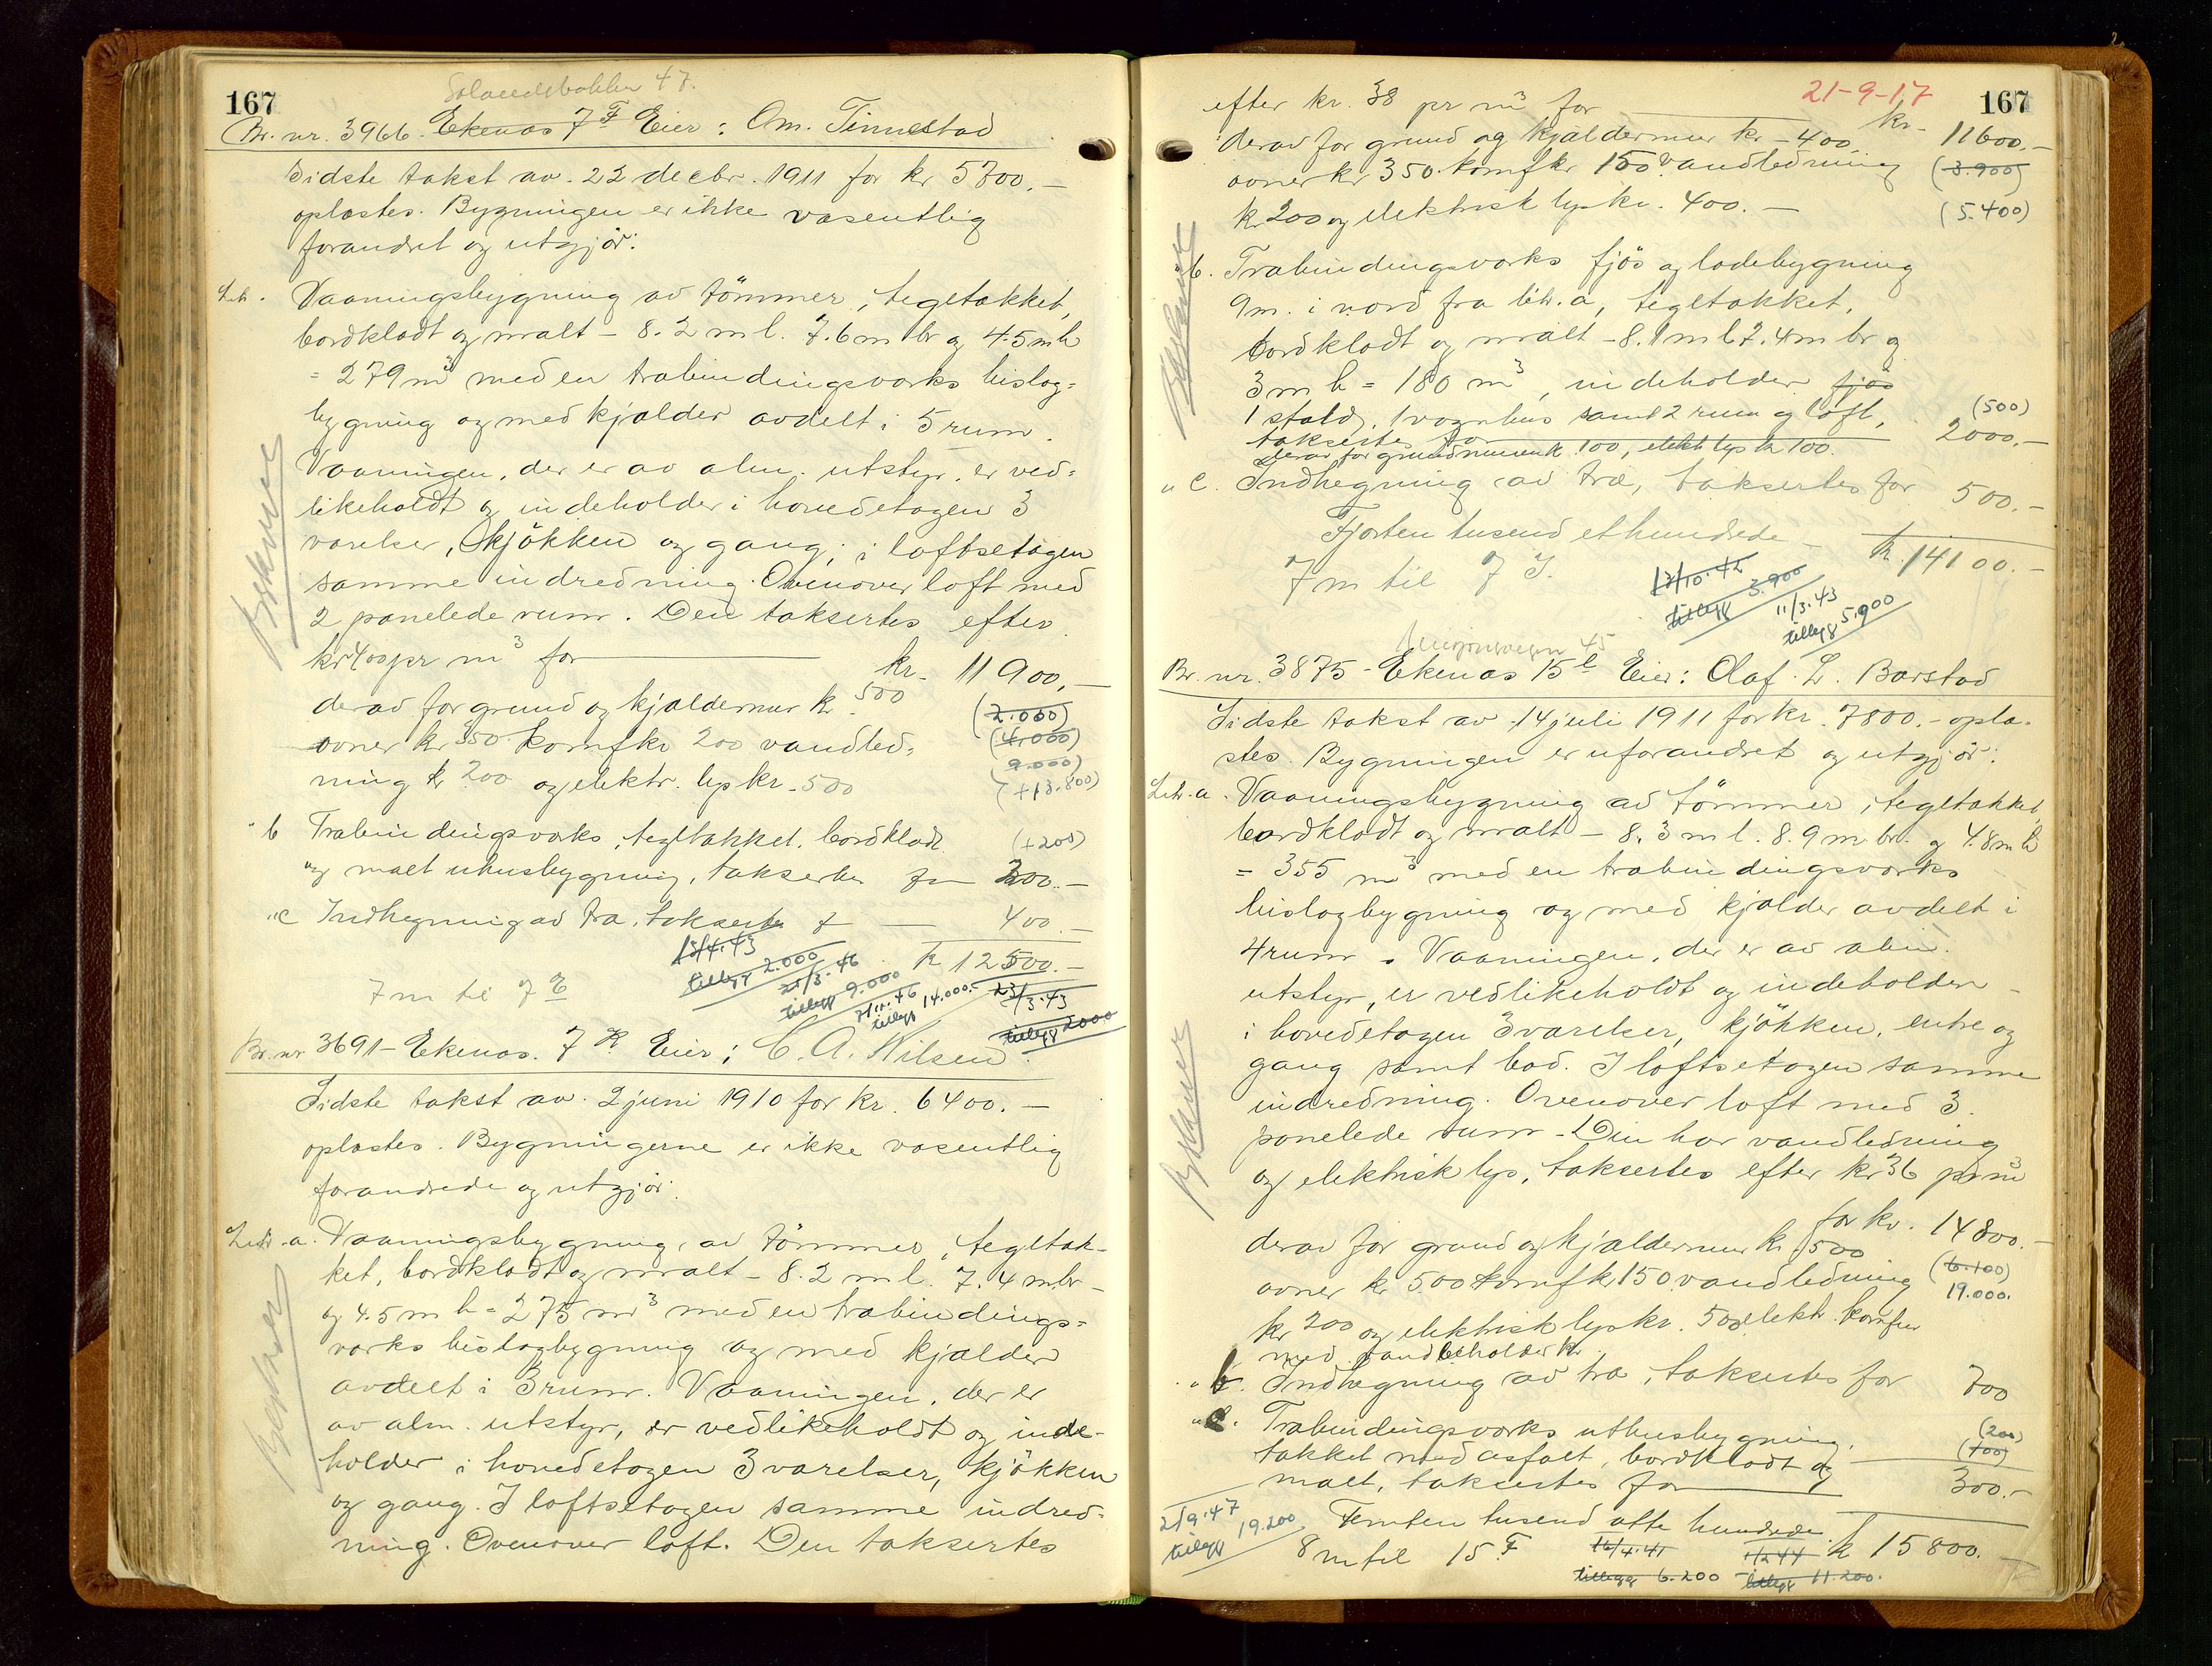 167
Br. nr. 3966 Ekenæs 7 F Eier: Om. Tinnestad
Sidste takst av 22 decbr. 1911 for kr 5700.—
oplæstes. Bygningen er ikke væsentlig
forandret og utgjör:
Litr. Vaaningsbygning av tömmer, tegltækket,
bordklædt og malt – 8.2 m l. 7.6 m br og 4.5 m h
= 279 m³ med en træbindingsværks bislag=
bygning og med kjælder avdelt i 5 rum.
Vaaningen, der er av alm. utstyr, er ved=
likeholdt og indeholder i hovedetagen 3
værelser, kjökken og gang; i loftsetagen
samme indredning. Ovenover loft med
2 panelede rum. Den takseres efter
kr 400 pr m³ for kr. 11900.—
derav for grund og kjældermur kr 500
(2.000)
ovner kr 350 komf kr 200 vandled=
(4.000)
(9.000)
ning kr 200 og elektr. lys kr. 500
(+13.800)
" b Træbindingsværks, tegltækket, bordklædt
(+200)
og malt uhusbygning, takseres for 200.—
" c Indhegning av træ, takseres f — 400.—
13/4.43
tillegg 2.000
25/3.46
tillegg 9.000
tillegg 14.000.-
kr 12500.—
23/3.43
tillegg 2000
7 m til 7 E
Br. nr 3691 – Ekenæs. 7 K Eier: C. A. Nilsen
Sidste takst av 2 juni 1910 for kr. 6400.—
oplæstes. Bygningerne er ikke væsentlig
forandrede og utgjör:
Litr. a. Vaaningsbygning, av tömmer, tegltæk-
ket, bordklædt og malt – 8.2 m l. 7.4 m br –
og 4.5 m h = 275 m³ med en træbindings=
værks bislagbygning og med kjælder
avdelt i 3 rum. Vaaningen, der er
av alm. utstyr, er vedlikeholdt og inde-
holder i hovedetagen 3 værelser, kjökken
og gang. I loftsetagen samme indred-
ning. Ovenover loft. Den takseres
21-9-17
167
efter kr. 38 pr m³ for kr. 11600.—
derav for grund og kjældermur kr – 400
ovner kr 350. komf kr 150 vandledning
(3.900)
kr 200 og elektrisk lys kr. 400.—
(5.400)
" b. Træbindingsværks fjös og ladebygning
9 m. i nord fra litr. a, tegltækket,
bordklædt og malt – 8.1 m l 7.4 m br og
3 m h = 180 m³, indeholder fjös
1 stald, 1 vognhus samt 2 rum og loft,
(500)
takseres for 2000.—
derav for grundmuren kr 100, elekt lys kr 100.
" c. Indhegning av træ, takseres for 500.—
Fjorten tusend et hundrede — kr. 14100.—
7 m til 7 I.
13/10.42
tillegg 3.900
11/3.43
tillegg 5.900
Br. nr. 3875 – Ekenæs 15 l Eier: Olaf L. Barstad
Sidste takst av 14 juli 1911 for kr. 7800.– oplæ-
stes. Bygningen er uforandret og utgjör:
Litr. a. Vaaningsbygning av tömmer, tegltækket,
bordklædt og malt – 8.3 m l. 8.9 m br. og 4.8 m h
= 355 m³ med en træbindingsværks
bislagbygning og med kjælder avdelt i
4 rum. Vaaningen, der er av alm.
utstyr, er vedlikeholdt og indeholder –
i hovedetagen 3 værelser, kjökken, entre og
gang samt bod. I loftsetagen samme
indredning. Ovenover loft med 3
panelede rum – Den har vandledning
og elektrisk lys, takseres efter kr 36 pr m³
for kr. 14800.—
derav for grund og kjældermur kr 500
ovner kr 500 komf kr 150 vandledning
(6.100)
19.000.
kr 200 og elektrisk lys kr. 500 elektr. komfur
med vandbeholder kr
" b. Indhegning av træ, takseres for 700
" c. Træbindingsværks uthusbygning,
(200)
tækket med asfalt, bordklædt og
(100)
malt, takseres for 300.—
Femten tusend otte hundrede kr 15800.—
2/9.47
tillegg 19.200
8 m til 15 F
16/4.41
tillegg 6.200
1/2 44
tillegg 11.200.